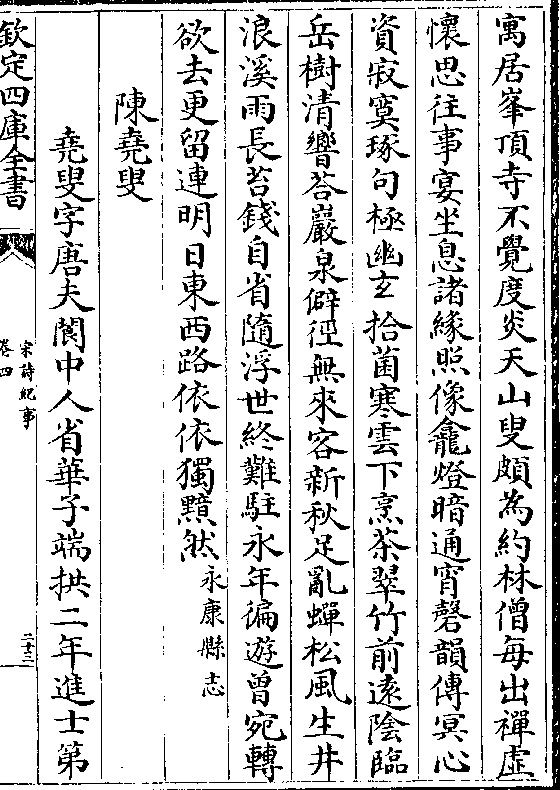 寓居峯頂寺不覺度炎天山叟頗為約林僧每出禪虛
懷思往事宴坐息諸緣照像龕燈暗通宵磬韻傳冥心
資寂寞琢句極幽玄拾菌寒雲下烹茶翠竹前逺陰臨
岳樹清響荅巖泉僻徑無來客新秋足亂蟬松風生井
浪溪雨長苔錢自省隨浮世終難駐永年徧遊曾宛轉
欲去更留連明日東西路依依獨黯然永康縣志
陳堯叟
堯叟字唐夫閬中人省華子端拱二年進士第
欽定四庫全書
宋詩紀事
卷四
二十三